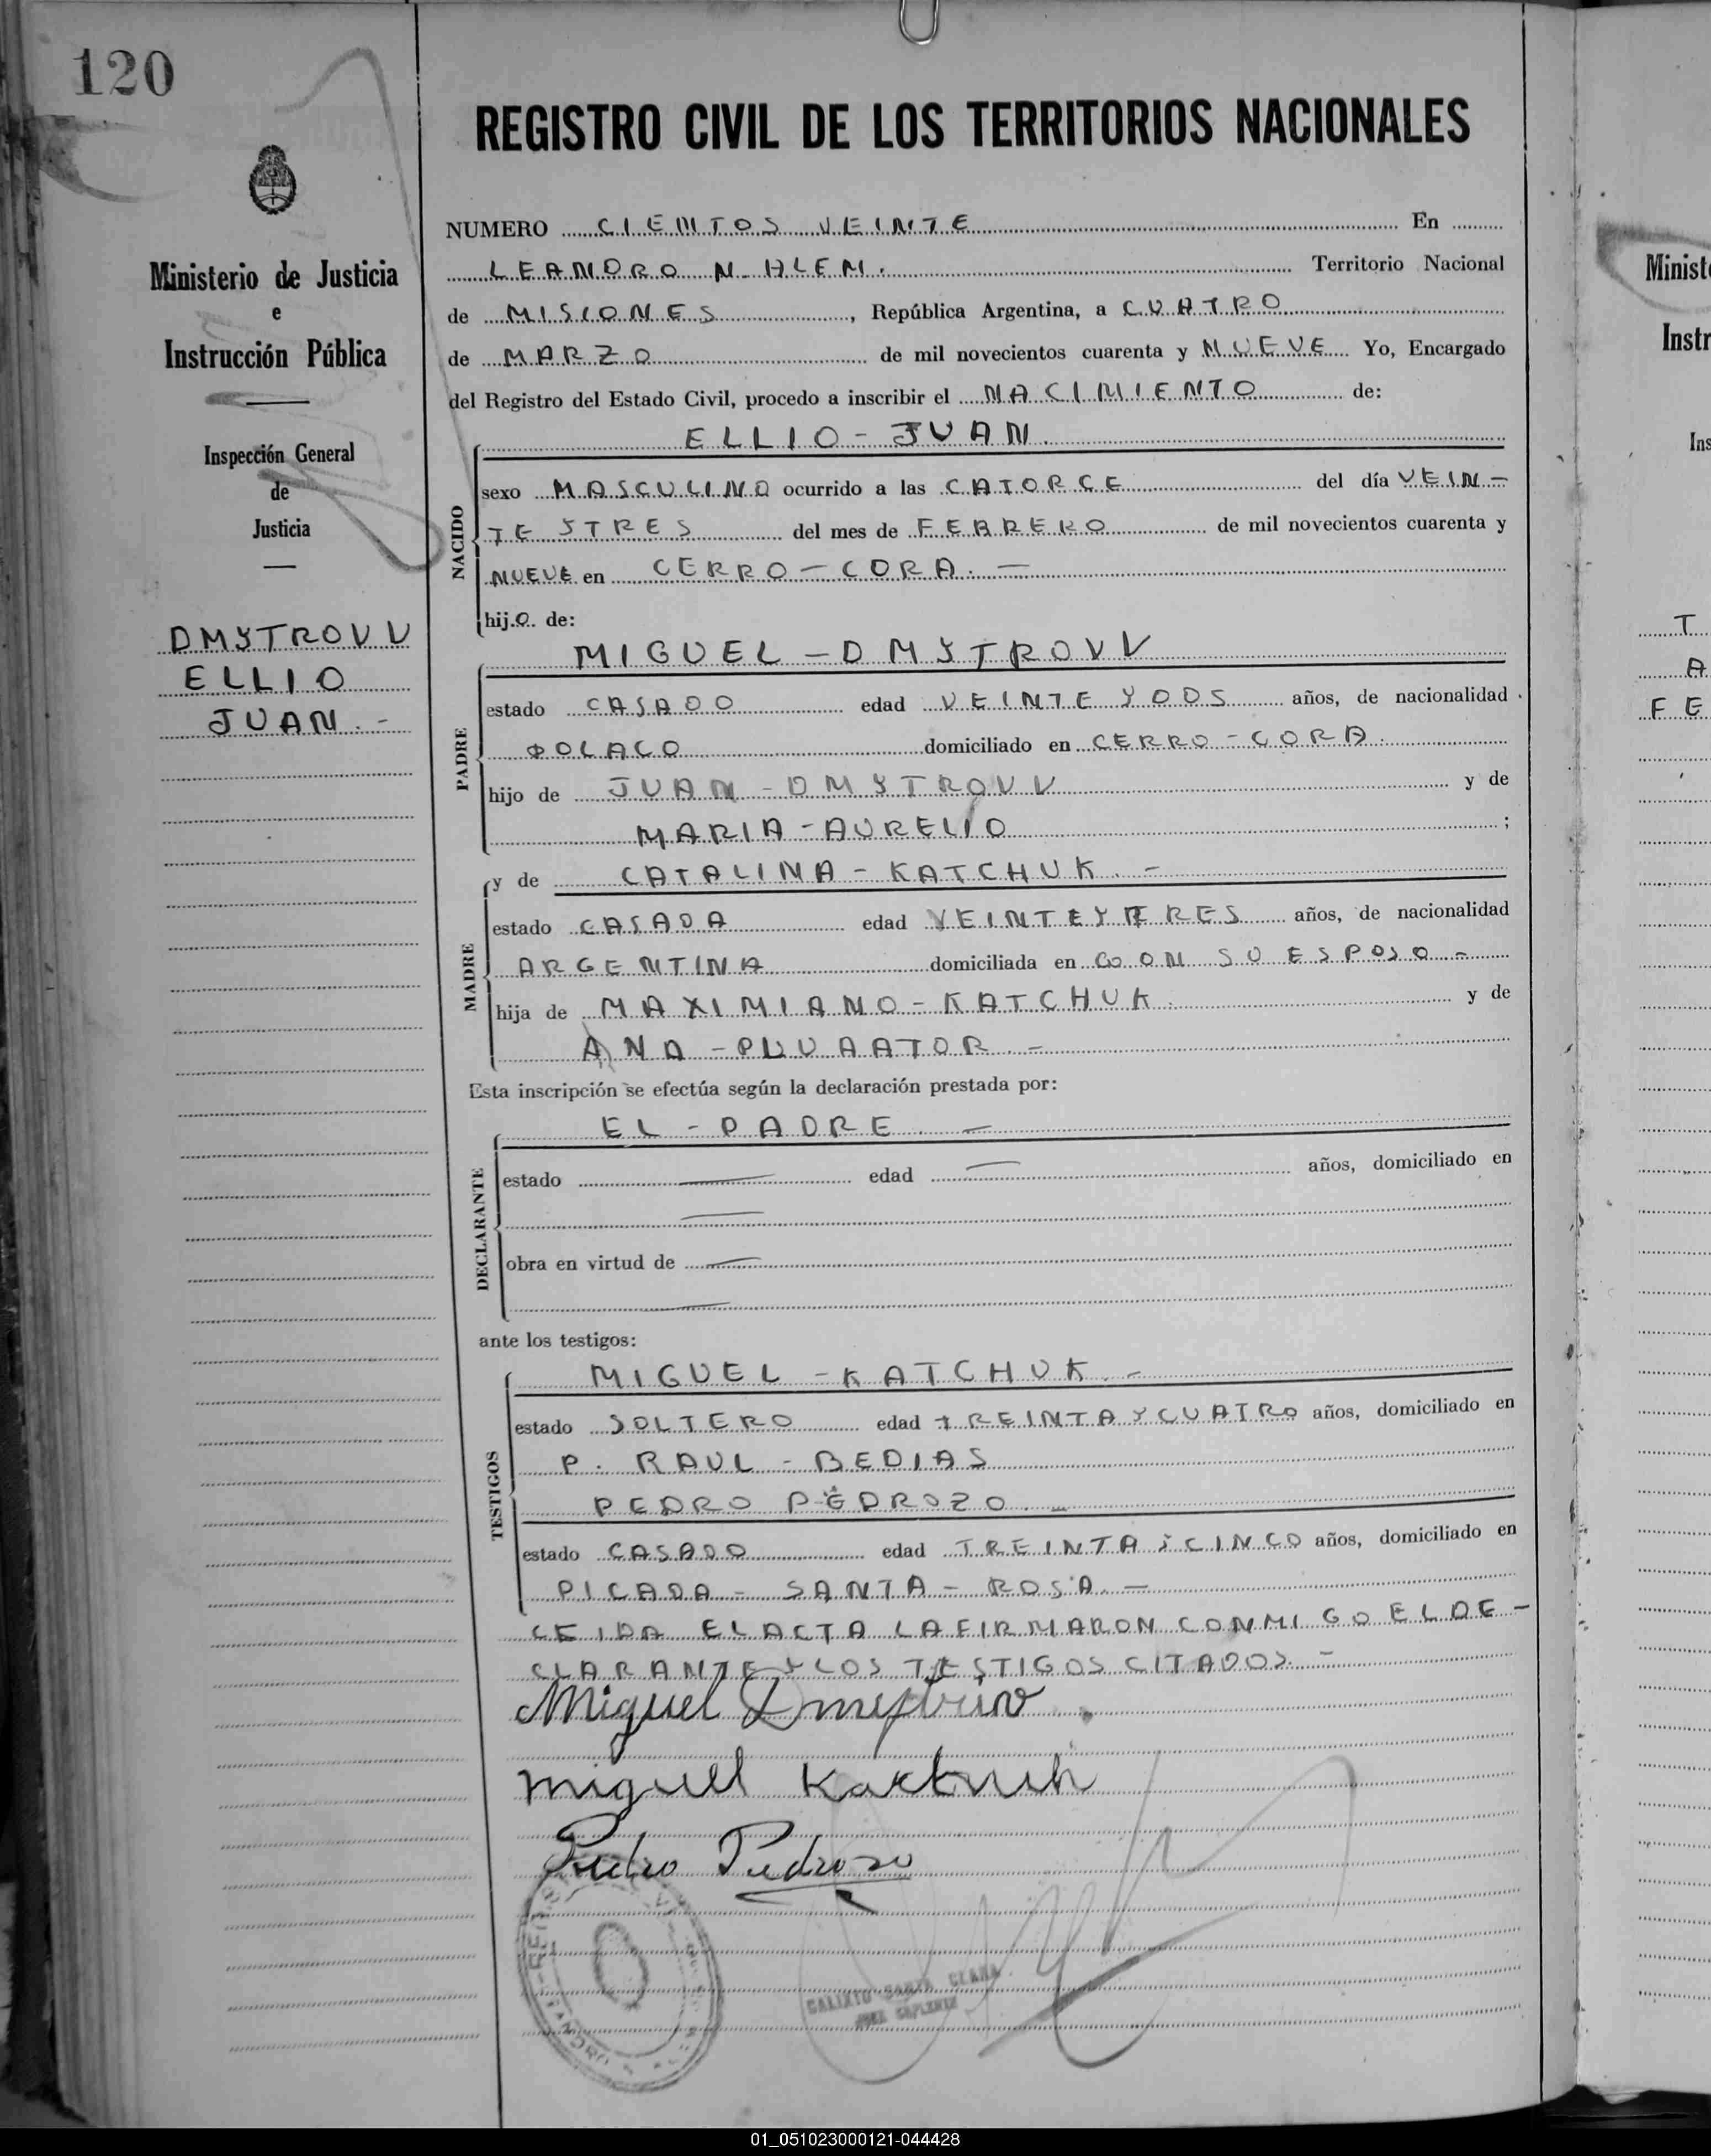 120
REGISTRO CIVIL DE LOS TERRITORIOS NACIONALES
Ministerio de Justicia
e
Instrucción Pública
Inspección General
de
Justicia
DMYTROVV
ELLIO
JUAN.-
NUMERO CIENTOS VEINTE En
LEANDRO N. ALEM. Territorio Nacional
de MISIONES, República Argentina, a CUATRO
de MARZO de mil novecientos cuarenta y NUEVE Yo, Encargado
del Registro del Estado Civil, procedo a inscribir el NACIMIENTO de:
ELLIO-JUAN.
NACIDO
sexo MASCULINO ocurrido a las CATORCE del día VEIN-
TE YTRES del mes de FEBRERO de mil novecientos cuarenta y
NUEVE en CERRO-CORA.-
hijo de:
MIGUEL-DMYTROVV
PADRE
estado CASADO edad VEINTE Y DOS años, de nacionalidad
POLACO domiciliado en CERRO-CORA.
hijo de JUAN-DMYTROVV y de
MARIA-AURELIO ;
y de CATALINA-KATCHUK.-
MADRE
estado CASADA edad VEINTE Y TRES años, de nacionalidad
ARGENTINA domiciliada en CON SU ESPOSO-
hija de MAXIMIANO-KATCHUK. y de
ANA-PLUVAATOR.-
Esta inscripción se efectúa según la declaración prestada por:
EL-PADRE.-
DECLARANTE
estado edad años, domiciliado en
obra en virtud de
ante los testigos:
MIGUEL-KATCHUK.-
TESTIGOS
estado SOLTERO edad TREINTA Y CUATRO años, domiciliado en
P. RAUL-BEDIAS
PEDRO PEDROZO.-
estado CASADO edad TREINTA Y CINCO años, domiciliado en
PICADA-SANTA-ROSA.-
LEIDA EL ACTA LA FIRMARON CONMIGO EL DE-
CLARANTE Y LOS TESTIGOS CITADOS.-
Miguel Dmytriw
miguel Katchuk
Pedro Pedrozo
CALIXTO SANTA CLARA
JUEZ SUPLENTE
Minist
Instr
Ins
T
A
FE
01_051023000121-044428